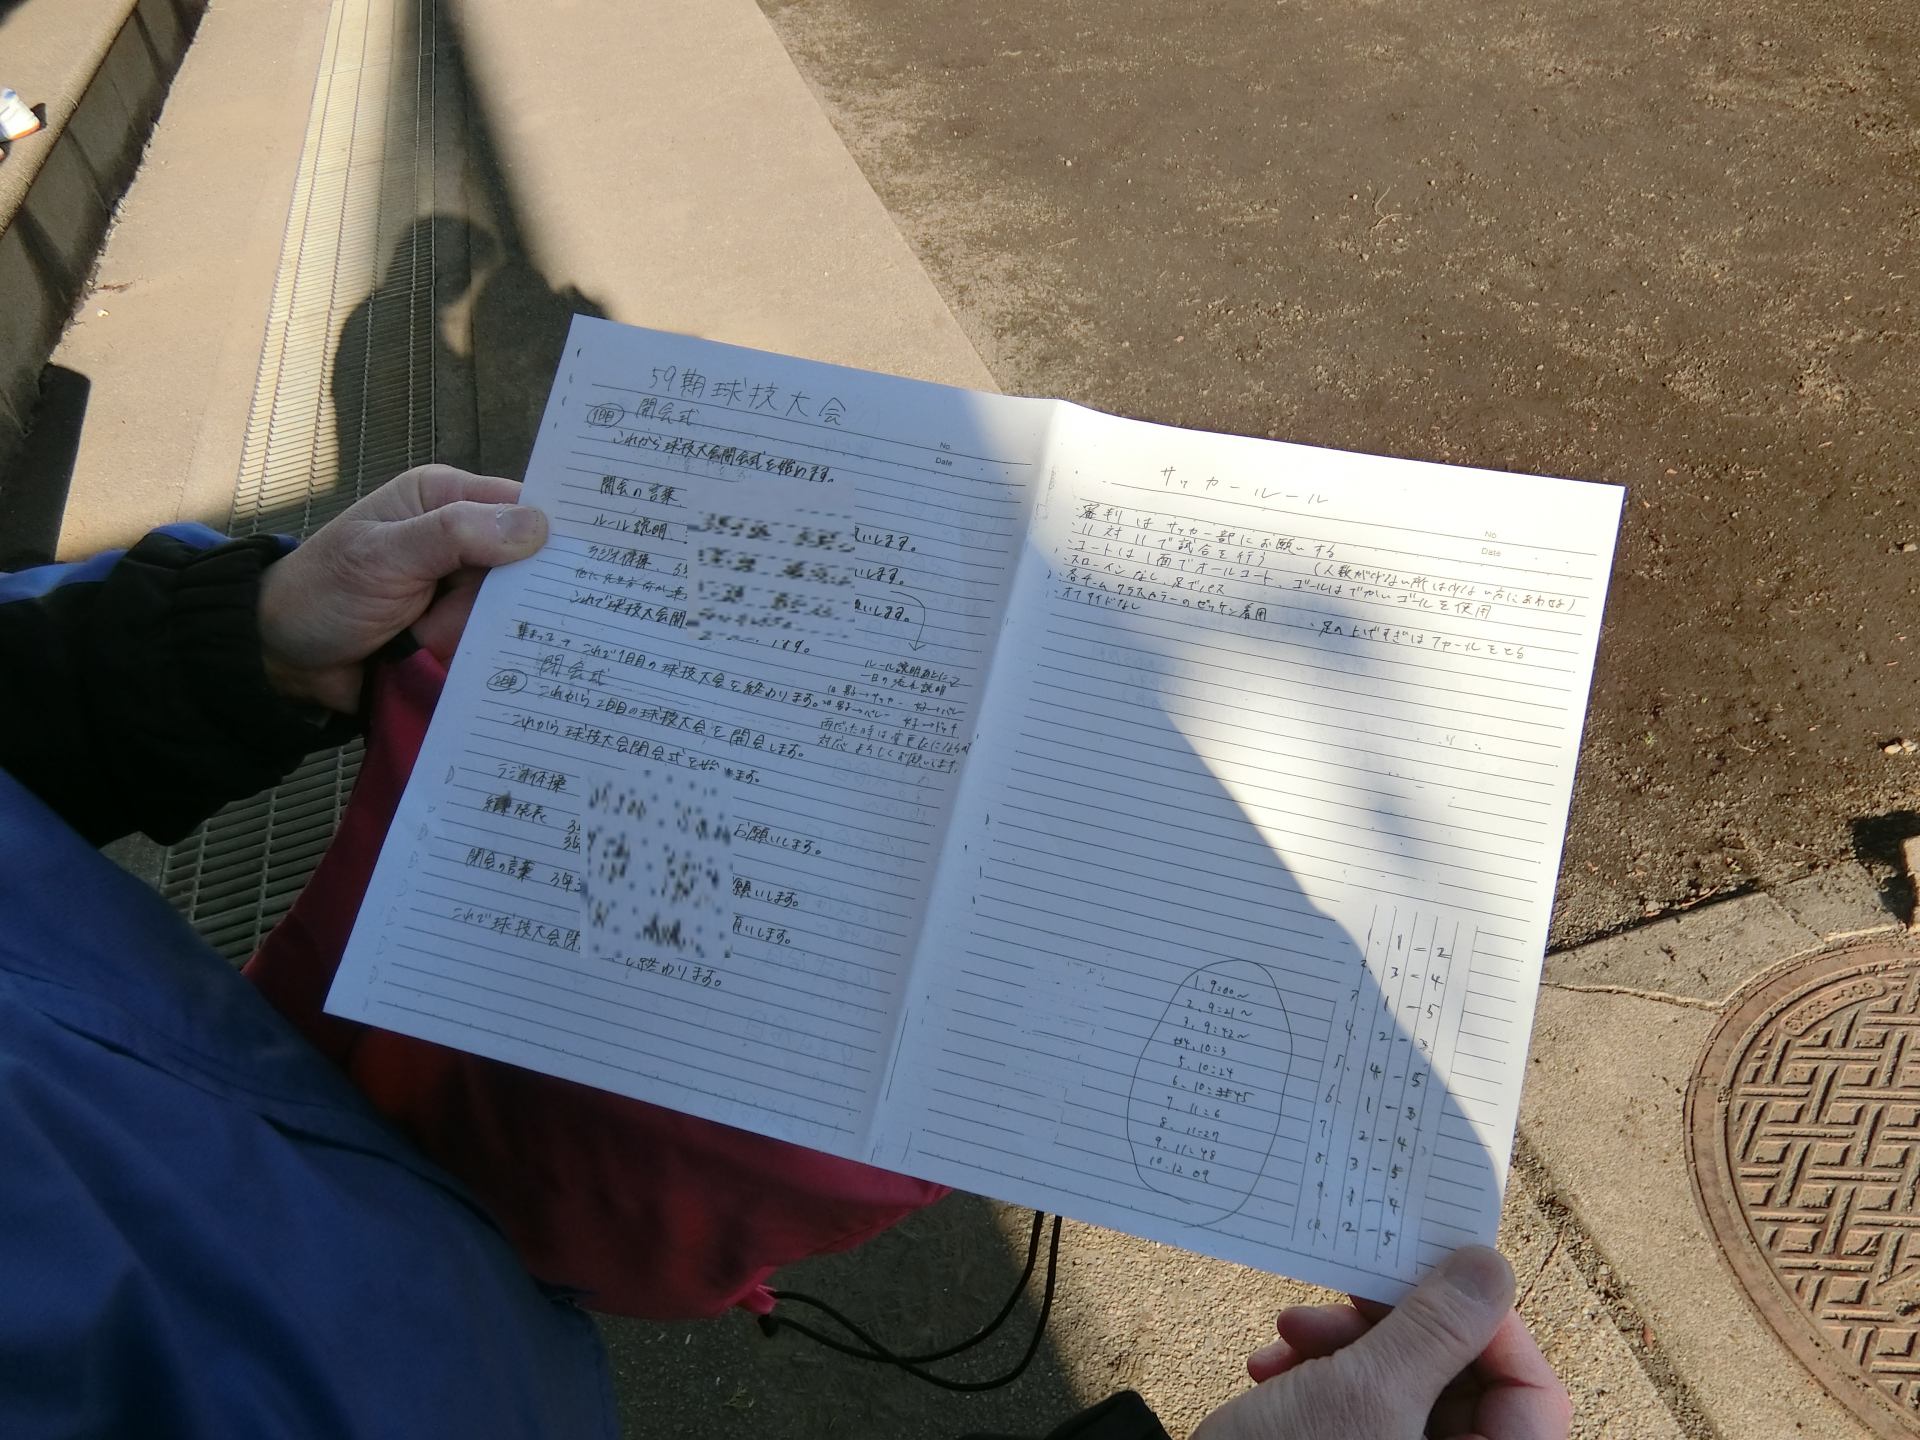 59期球技大会
1日目 開会式
No.
Date
これから球技大会開会式を始めます。
開会の言葉
いします。
ルール説明
いします。
ラジオ体操
いします。
これで球技大会開
ます。
ルール説明
集まって→これで1日目の球技大会を終わります。
2日目 閉会式
これから2日目の球技大会を開会します。
対応よろしくお願いします。
これから球技大会閉会式を始めます。
ラジオ体操
お願いします。
閉会の言葉
願いします。
いします。
これで球技大会閉
終わります。
サッカールール
No.
Date
・審判はサッカー部にお願いする
・11対11で試合を行う (人数が少ない所は少ない方にあわせる)
・コートは1面でオールコート、ゴールはでかいゴールを使用
・スローインなし、足でパス
・各チームクラスカラーのゼッケン着用 ・足の上げすぎはファールをとる
・オフサイドなし
1. 9:00~
2. 9:21~
3. 9:42~
4. 10:3
5. 10:24
6. 10:45
7. 11:6
8. 11:27
9. 11:48
10. 12:09
1. 1-2
2. 3-4
3. 1-5
4. 2-3
5. 4-5
6. 1-3
7. 2-4
8. 3-5
9. 1-4
10. 2-5